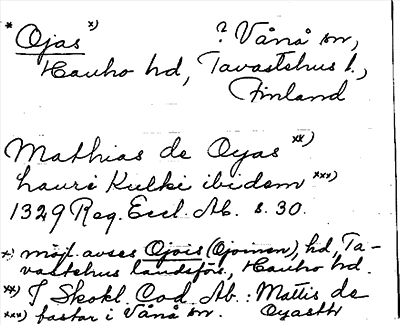 * Ojas x) ? Vånå sn,
Hauho hd, Tavastehus l.,
Finland
Mathias de Oyas xx)
hauri Kulki ibidem xxx)
1329 Reg. Eccl. Ab. s. 30.
x) möjl. avses Ojois (Ojoinen), hd, Ta-
vastehus landsförs, Hauho hd.
xx) I Skokl. Cod. Ab.: Mattis de
Oyastt
xxx) fastar i Vånå sn.